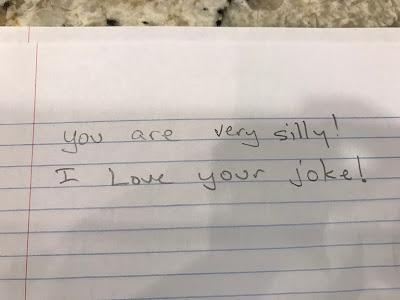 you are very silly!
I Love your joke!